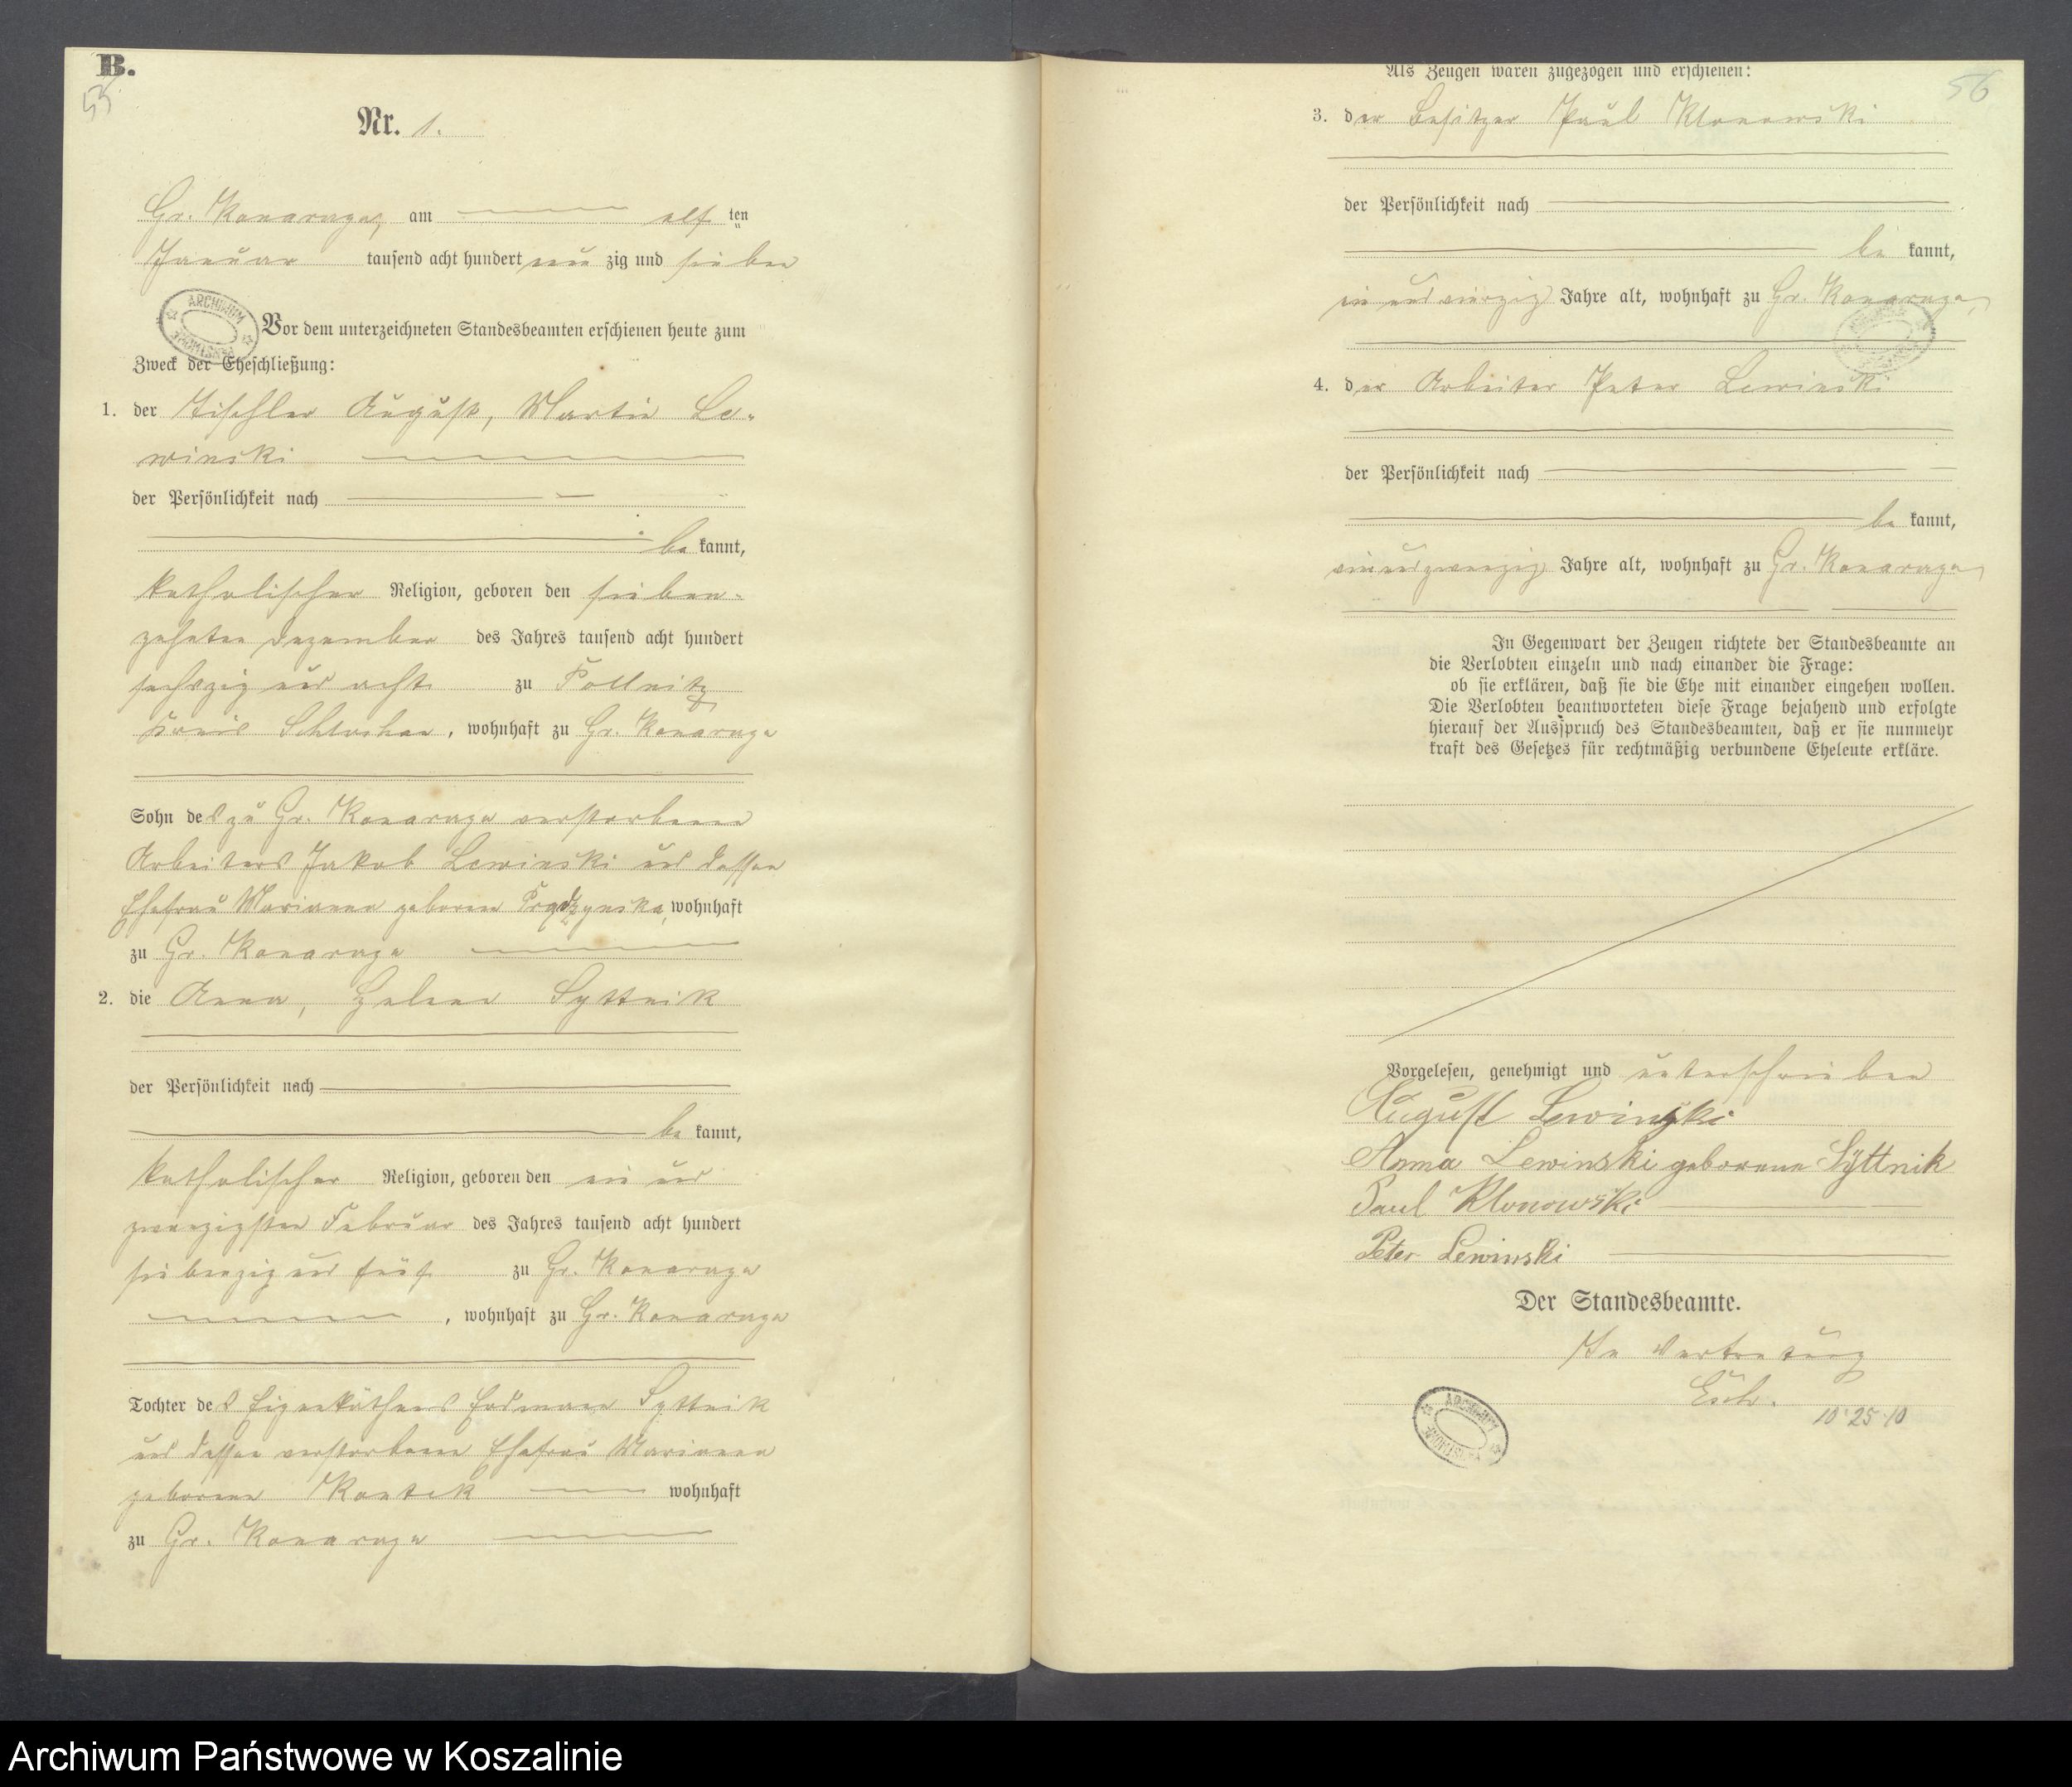 B.
55
Nr. 1.
Gr. Konarzyn, am elf ten
Januar tausend acht hundert neun zig und sieben
ARCHIWUM
Vor dem unterzeichneten Standesbeamten erschienen heute zum
Zweck der Eheschließung:
1. der Tischler August, Martin Le-
winski
der Persönlichkeit nach
be kannt,
katholischer Religion, geboren den sieben-
zehnten Dezember des Jahres tausend acht hundert
sechszig und acht zu Pollnitz
Kreis Schlochau, wohnhaft zu Gr. Konarzyn
Sohn des zu Gr. Konarzyn verstorbenen
Arbeiters Jakob Lewinski und dessen
Ehefrau Marianna geborene wohnhaft
zu Gr. Konarzyn
2. die Anna, Helene Syttnik
der Persönlichkeit nach
be kannt,
katholischer Religion, geboren den ein und
zwanzigsten Februar des Jahres tausend acht hundert
siebenzig und fünf zu Gr. Konarzyn
, wohnhaft zu Gr. Konarzyn
Tochter des Eigenkäthners Erdmann Syttnik
und dessen verstorbenen Ehefrau Marianna
geborene Kontek wohnhaft
zu Gr. Konarzyn
56
Als Zeugen waren zugezogen und erschienen:
3. der Besitzer Paul Klonowski
der Persönlichkeit nach
be kannt,
ein und vierzig Jahre alt, wohnhaft zu Gr. Konarzyn,
4. der Arbeiter Peter Lewinski
der Persönlichkeit nach
be kannt,
ein und zwanzig Jahre alt, wohnhaft zu Gr. Konarzyn,
In Gegenwart der Zeugen richtete der Standesbeamte an
die Verlobten einzeln und nach einander die Frage:
ob sie erklären, daß sie die Ehe mit einander eingehen wollen.
Die Verlobten beantworteten diese Frage bejahend und erfolgte
hierauf der Ausspruch des Standesbeamten, daß er sie nunmehr
kraft des Gesetzes für rechtmäßig verbundene Eheleute erkläre.
Vorgelesen, genehmigt und unterschrieben
August Lewinski
Anna Lewinski geborene Syttnik
Paul Klonowski
Peter Lewinski
Der Standesbeamte.
In Vertretung
ARCHIWUM
10 25 10
Archiwum Państwowe w Koszalinie